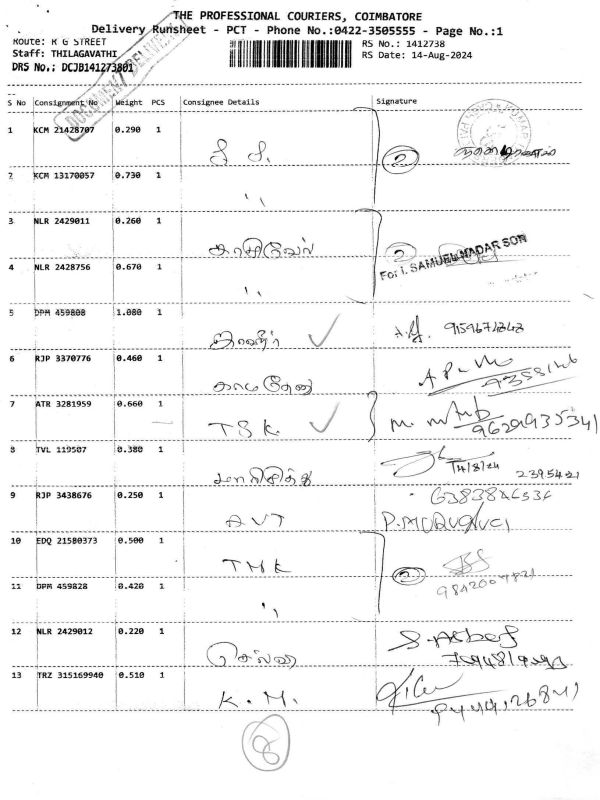 THE PROFESSIONAL COURIERS, COIMBATORE
Delivery Runsheet - PCT - Phone No.:0422-3505555 - Page No.:1
Route: R G STREET RS No.: 1412738
Staff: THILAGAVATHI RS Date: 14-Aug-2024
DRS No.: DCJB141273801
DOCUMENT DELIVERY
S No Consignment No Weight PCS Consignee Details Signature
1 KCM 21428707 0.290 1
2
2 KCM 13170057 0.730 1
"
3 NLR 2429011 0.260 1
காசிவேல் 2
For I. SAMUEL NADAR SON
4 NLR 2428756 0.670 1
"
5 DPM 459808 1.080 1
6 RJP 3370776 0.460 1
காமதேனு
7 ATR 3281959 0.660 1
T S K. 9629935341
8 TVL 119507 0.380 1
14/8/24
9 RJP 3438676 0.250 1
AVT
10 EDQ 21580373 0.500 1
T M K
11 DPM 459828 0.420 1
" 2
12 NLR 2429012 0.220 1
13 TRZ 315169940 0.510 1
K. M.
8